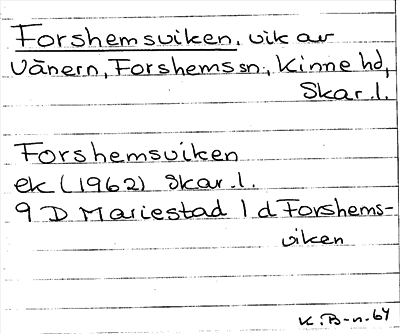 Forshemsviken, vik av
Vänern, Forshems sn., Kinne hd,
Skar.l.
Forshemsviken
ek (1962) Skar.l.
9 D Mariestad 1 d Forshems-
viken
K.B-n-64